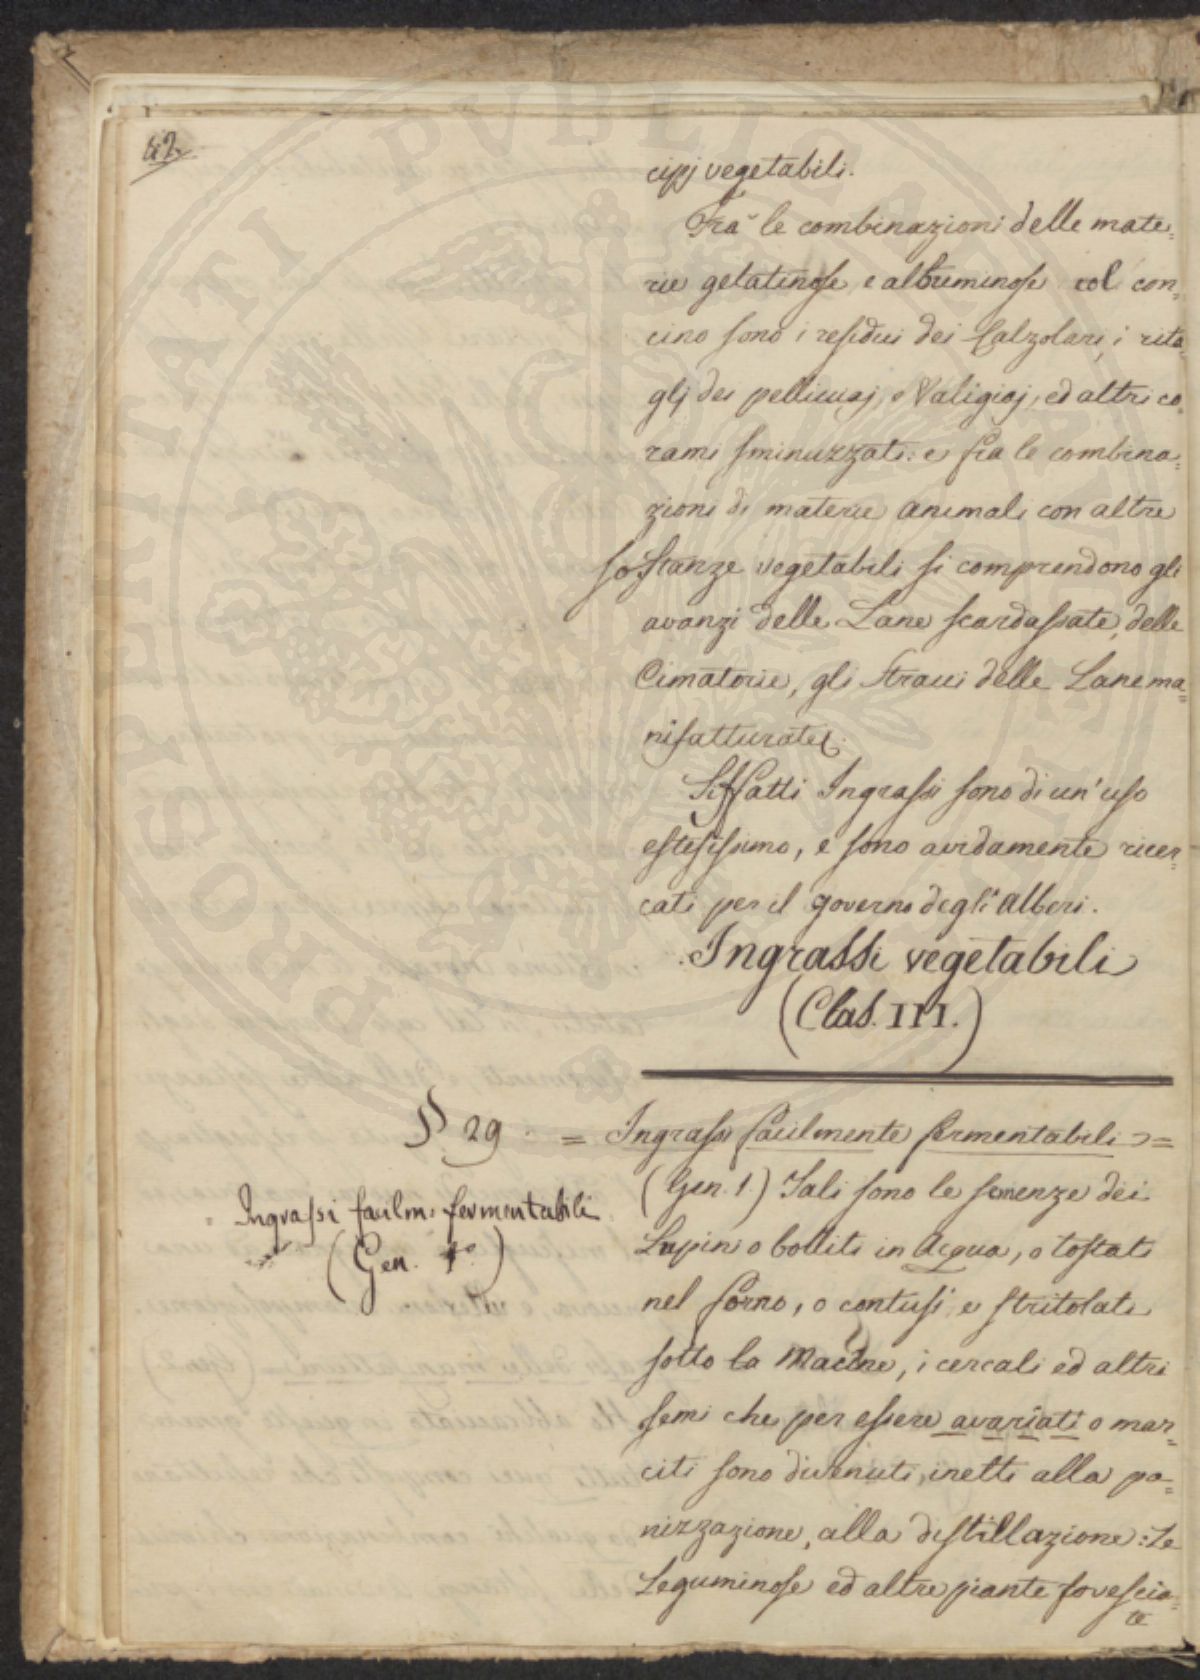 42.
cipj vegetabili.
Fra le combinazioni delle mate=
rie gelatinose, e albuminose col con=
cino sono i residui dei Calzolari, i rita=
glj dei pellicciaj, e Valigiaj, ed altri co=
rami sminuzzati: e fra le combina=
zioni di materie animali con altre
sostanze vegetabili si comprendono gli
avanzi delle Lane scardassate, delle
Cimatorie, gli stracci delle Lane ma=
nifatturate.
Siffatti Ingrassi sono di un'uso
estesissimo, e sono avidamente ricer=
cati per il governo degli alberi.
Ingrassi vegetabili
(Clas. III.)
§ 29 = Ingrassi facilmente fermentabili =
Ingrassi facilm: fermentabili
(Gen. 1.°)
(Gen. 1.) Tali sono le semenze dei
Lupini o bolliti in Acqua, o tostati
nel forno, o contusi, e stritolati
sotto la Macine, i cereali ed altri
semi che per essere avariati o mar=
citi sono divenuti inetti alla pa=
nizzazione, alla distillazione: Le
Leguminose ed altre piante sovescia=
te
PUBLICAE PROSPERITATI